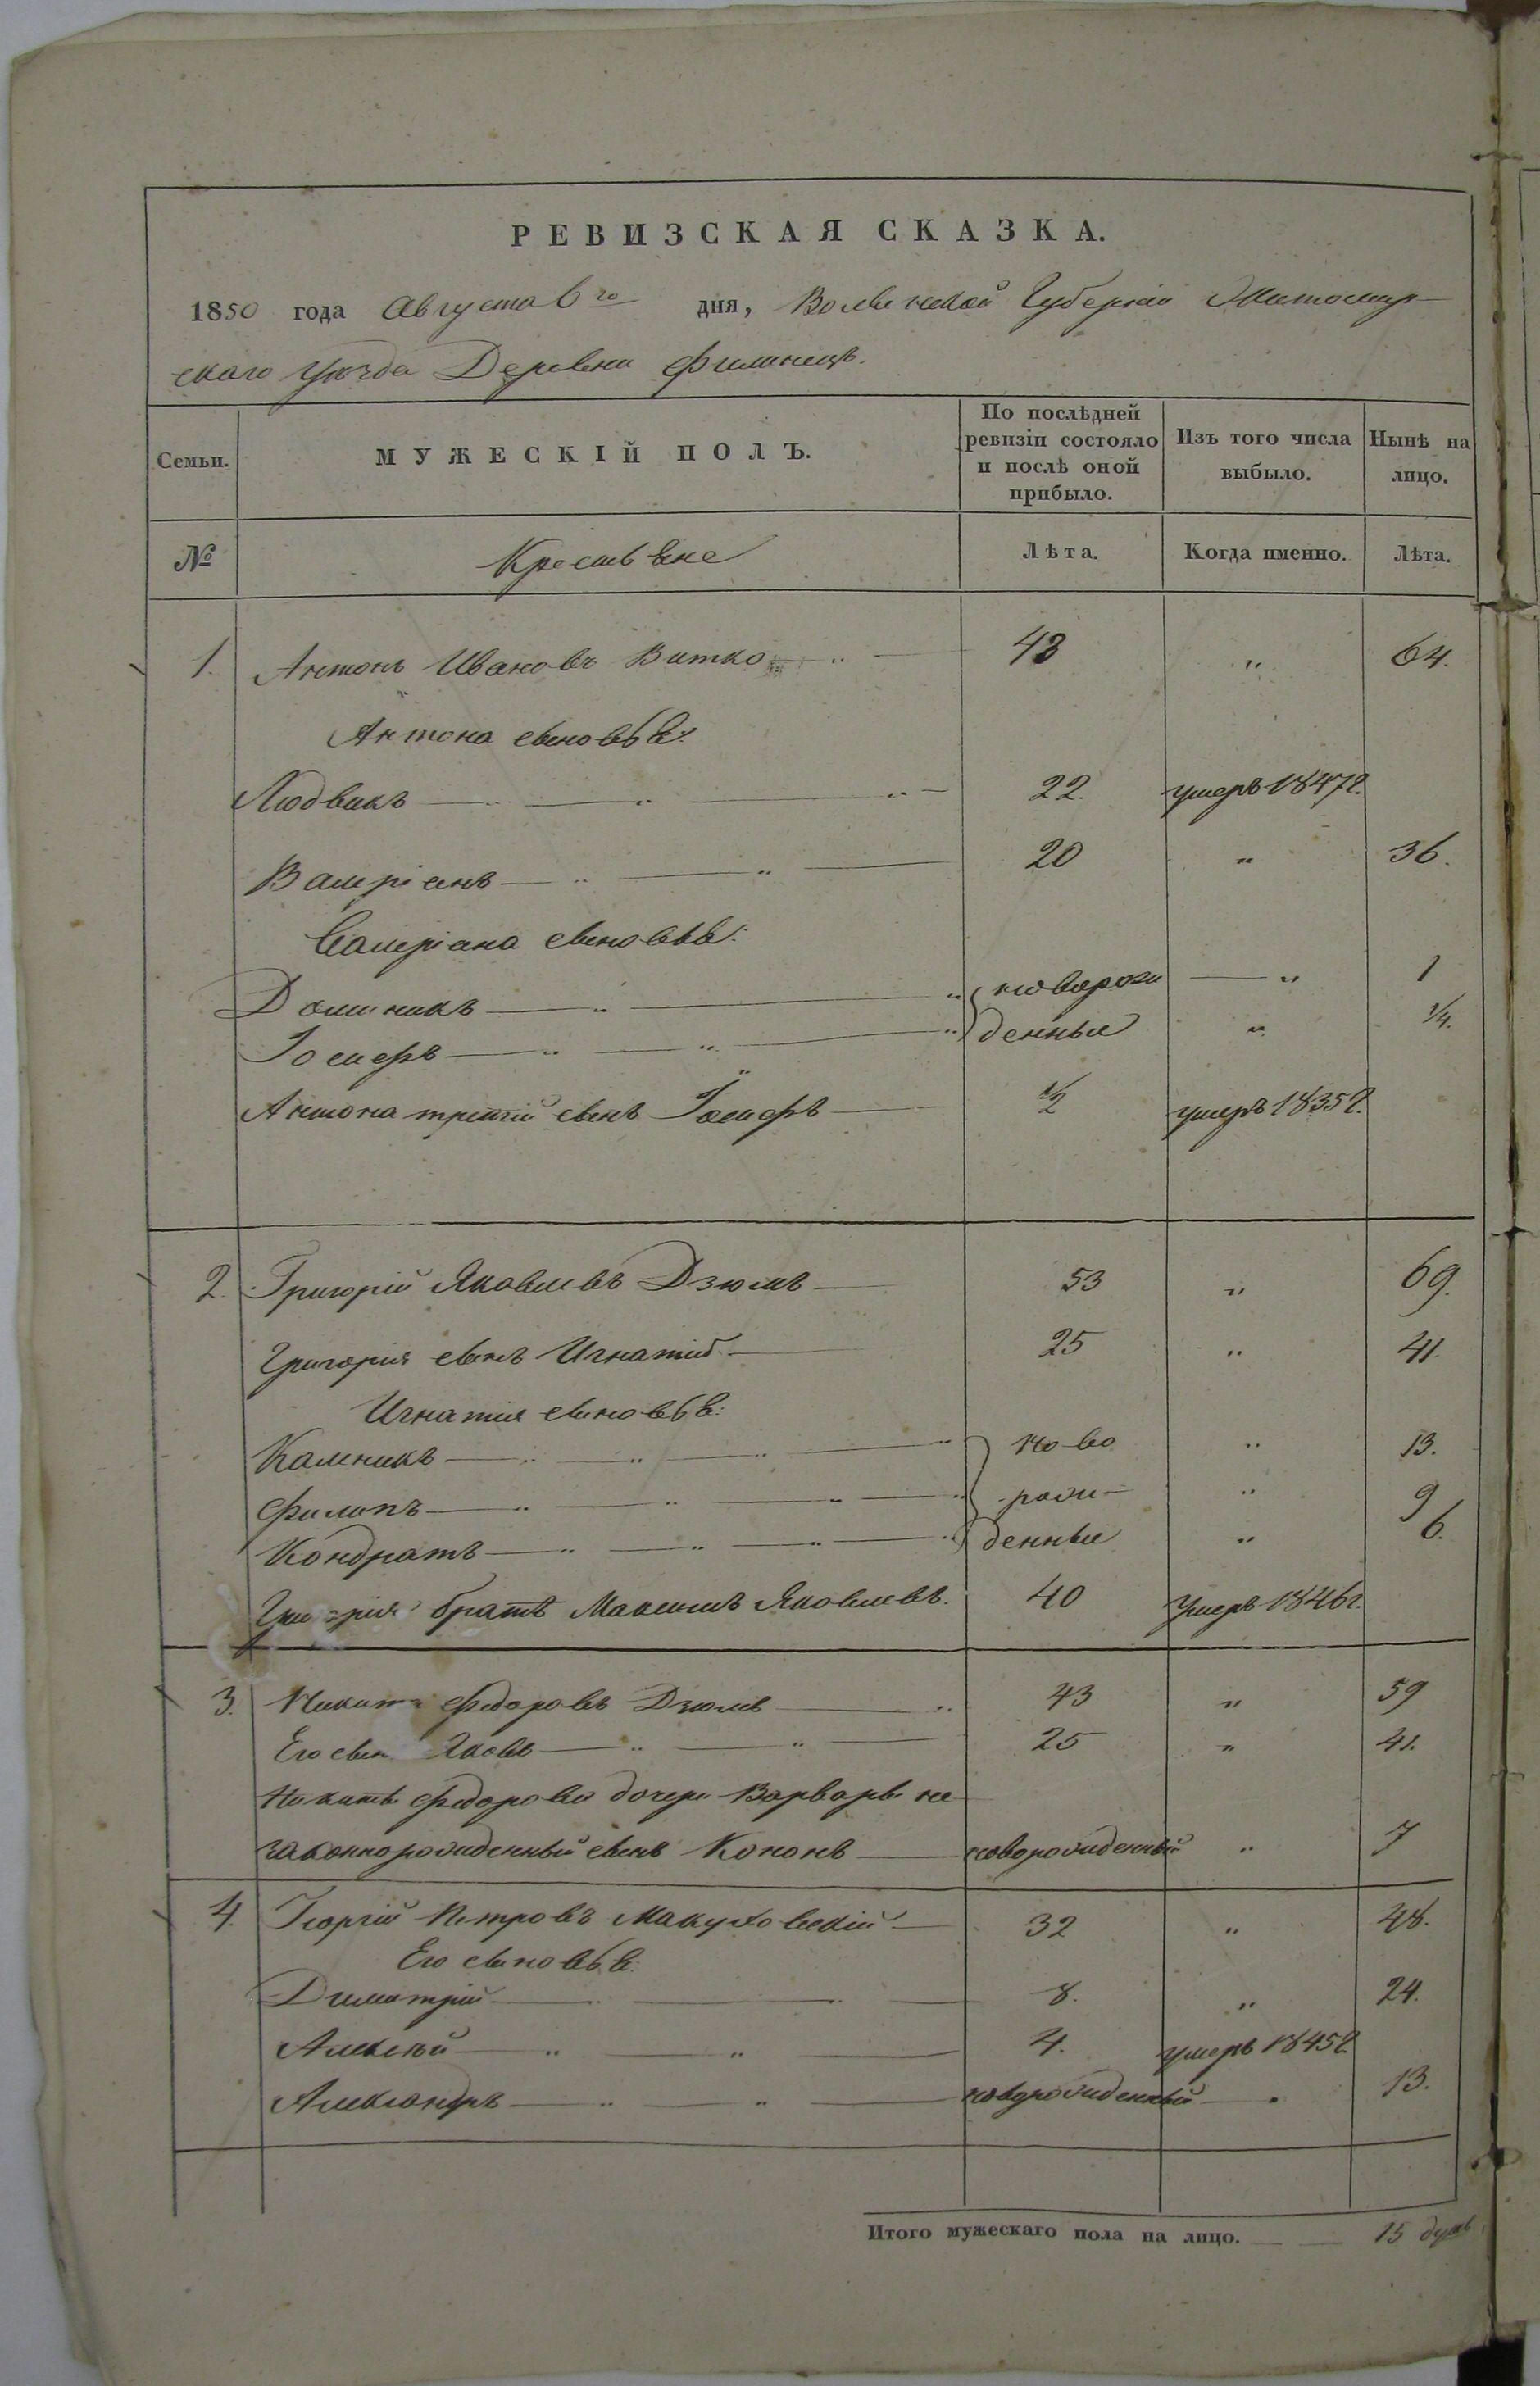 РЕВИЗСКАЯ СКАЗКА.
1850 года Августа 6го дня, Волынской Губерніи Житомир-
скаго Уѣзда Деревни Филинецъ.
Семьи. МУЖЕСКІЙ ПОЛЪ. По послѣдней ревизіи состояло и послѣ оной прибыло. Изъ того числа выбыло. Нынѣ на лицо.
№ Крестьяне Лѣта. Когда именно. Лѣта.
1. Антонъ Ивановъ Витко 48 " 64.
Антона сыновья:
Людвикъ 22. умеръ 1847г.
Валеріанъ 20 " 36.
Валеріана сыновья:
Доминикъ новорож " 1
Іосифъ денныи " 1/4.
Антона третій сынъ Іосифъ 1/2 умеръ 1835г.
2. Григорій Яковлевъ Дзюмъ 53 " 69.
Григорія сынъ Игнатій 25 " 41.
Игнатія сыновья:
Калникъ ново " 13.
Филипъ рож- " 9
Кондратъ денныи " 6.
братъ Максимъ Яковлевъ. 40 Умеръ 1846г.
3. Никита Федоровъ Дзюмъ 43 " 59
Его сын Яковъ 25 " 41.
Никиты Федорова дочери Варвары не
законнорожденный сынъ Кононъ новорожденный " 7
4. Георгій Петровъ Макуховскій 32 " 48.
Его сыновья:
Димитрій 8. " 24.
Алексѣй 4. умеръ 1845г.
Александръ новорожденный " 13.
Итого мужескаго пола на лицо. 15 душъ